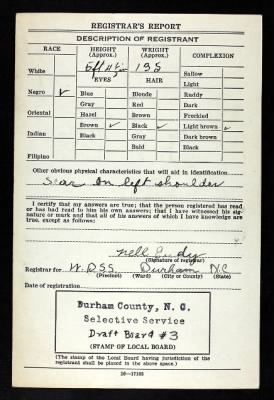 REGISTRAR'S REPORT
DESCRIPTION OF REGISTRANT
RACE HEIGHT (Approx.) WEIGHT (Approx.) COMPLEXION
White 5 ft 11 in 135 Sallow
EYES HAIR Light
Negro ✓ Blue Blonde Ruddy
Gray Red Dark
Oriental Hazel Brown Freckled
Brown ✓ Black ✓ Light brown ✓
Indian Black Gray Dark brown
Bald Black
Filipino
Other obvious physical characteristics that will aid in identification
Scar on left shoulder
I certify that my answers are true; that the person registered has read
or has had read to him his own answers; that I have witnessed his sig-
nature or mark and that all of his answers of which I have knowledge are
true, except as follows:
Nell
(Signature of registrar)
Registrar for W.DSS Durham N.C
(Precinct) (Ward) (City or County) (State)
Date of registration
Durham County, N. C.
Selective Service
Draft Board #3
(STAMP OF LOCAL BOARD)
(The stamp of the Local Board having jurisdiction of the
registrant shall be placed in the above space.)
16—17105